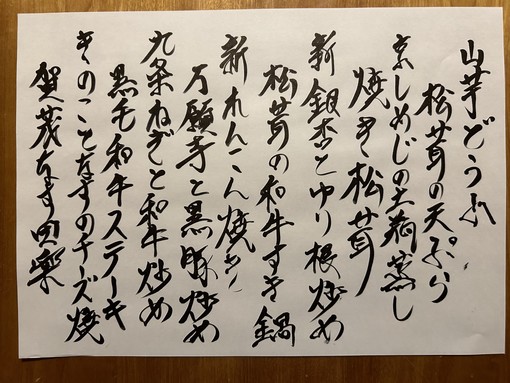 山芋どうふ
松茸の天ぷら
京しめじの土瓶蒸し
焼き松茸
新銀杏とゆり根炒め
松茸の和牛すき鍋
新れんこん焼き
万願寺と黒豚炒め
九条ねぎと和牛炒め
黒毛和牛ステーキ
きのことなすのチーズ焼
賀茂なす田楽